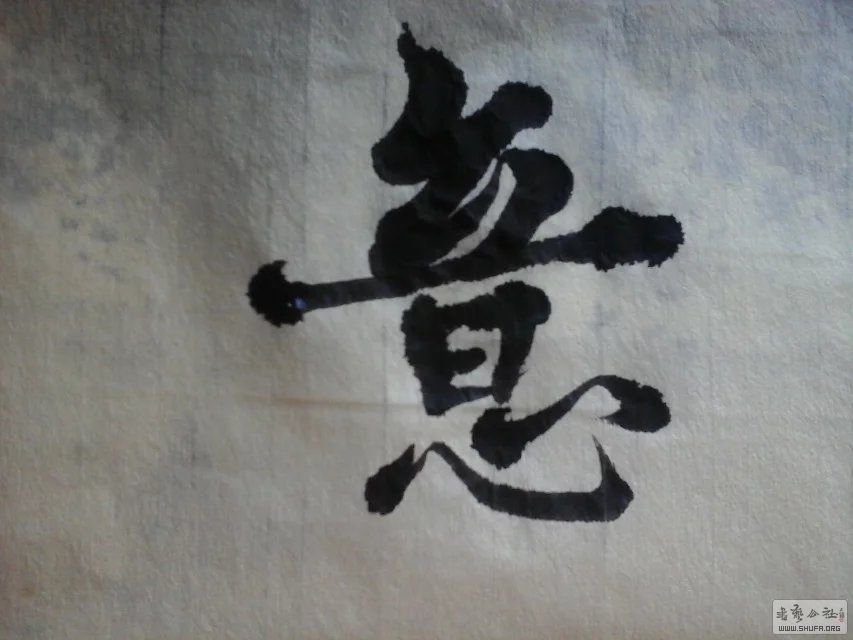 意
书艺公社
WWW.SHUFA.ORG